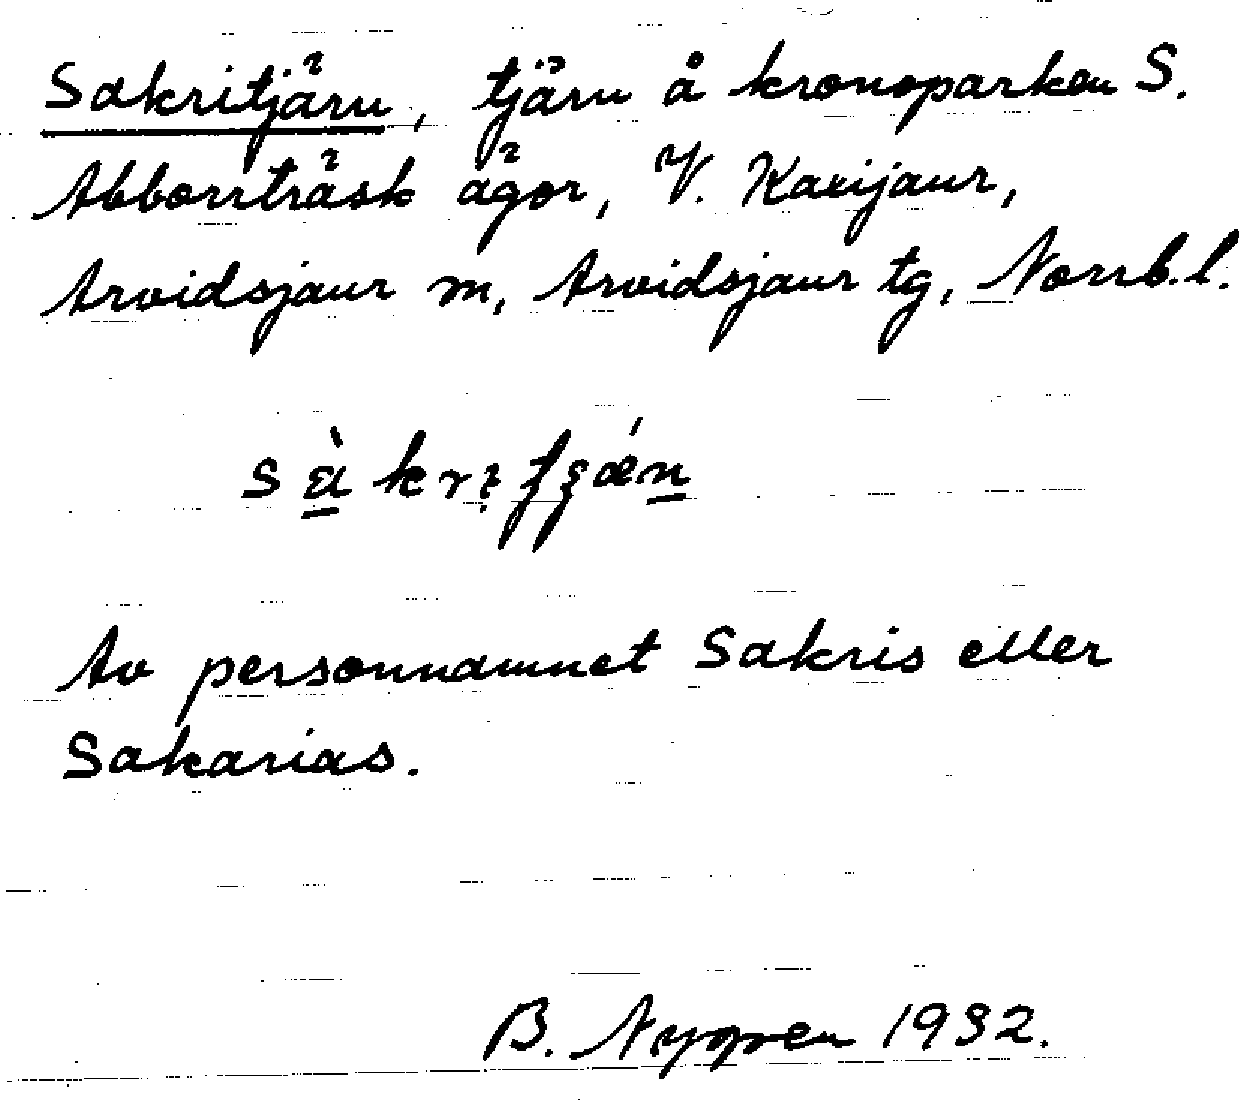 Sakritjärn, tjärn å kronoparken S.
Abborrträsk ägor, V. Kaxijaur,
Arvidsjaur sn, Arvidsjaur tg, Norrb.l.
Av personnamnet Sakris eller
Sakarias.
B. Nygren 1932.